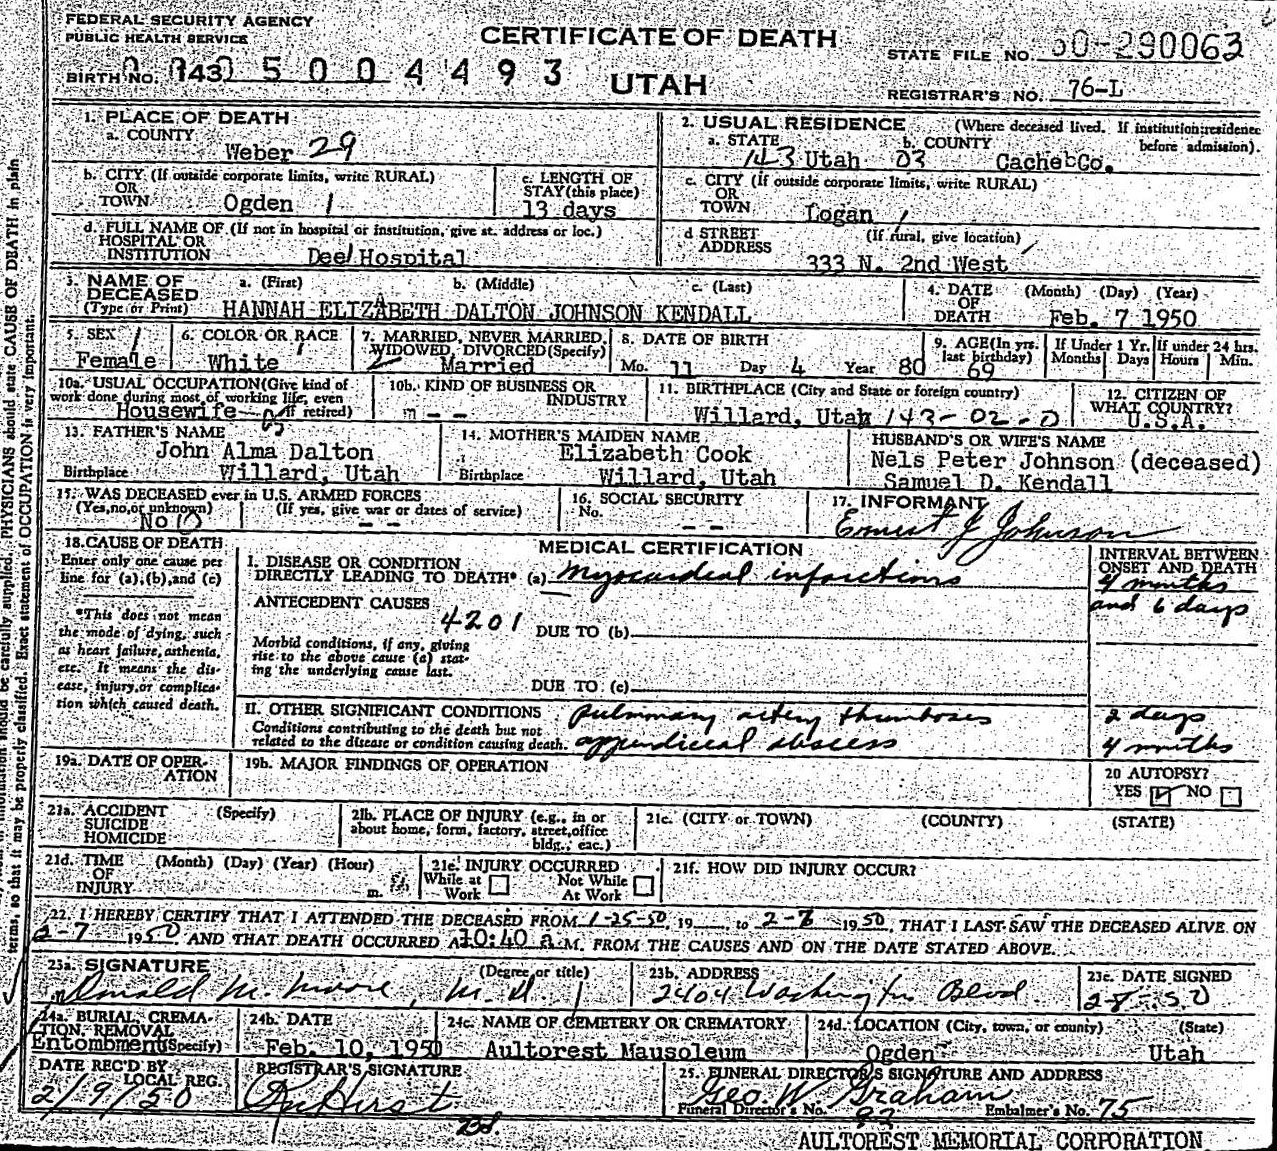 FEDERAL SECURITY AGENCY
PUBLIC HEALTH SERVICE
CERTIFICATE OF DEATH
UTAH
STATE FILE NO. 50-290063
BIRTH NO. 143 0 5 0 0 4 4 9 3
REGISTRAR'S NO. 76-L
1. PLACE OF DEATH
a. COUNTY
Weber 29
2. USUAL RESIDENCE (Where deceased lived. If institution:residence before admission).
a. STATE 143 Utah 03 b. COUNTY Cache Co.
b. CITY (If outside corporate limits, write RURAL)
OR
TOWN Ogden 1
c. LENGTH OF
STAY (this place)
13 days
c. CITY (If outside corporate limits, write RURAL)
OR
TOWN Logan 1
d. FULL NAME OF (If not in hospital or institution, give st. address or loc.)
HOSPITAL OR
INSTITUTION Dee Hospital
d STREET (If rural, give location)
ADDRESS
333 N. 2nd West
3. NAME OF a. (First) b. (Middle) c. (Last)
DECEASED
(Type or Print) HANNAH ELIZABETH DALTON JOHNSON KENDALL
4. DATE (Month) (Day) (Year)
OF
DEATH Feb. 7 1950
5. SEX 1
Female
6. COLOR OR RACE
White
7. MARRIED, NEVER MARRIED,
WIDOWED, DIVORCED (Specify)
Married
8. DATE OF BIRTH
Mo. 11 Day 4 Year 80
9. AGE (In yrs.
last birthday)
69
If Under 1 Yr.
Months Days
If under 24 hrs.
Hours Min.
10a. USUAL OCCUPATION (Give kind of
work done during most of working life, even
Housewife if retired)
10b. KIND OF BUSINESS OR
INDUSTRY
- -
11. BIRTHPLACE (City and State or foreign country)
Willard, Utah 143-02-0
12. CITIZEN OF
WHAT COUNTRY?
U.S.A.
13. FATHER'S NAME
John Alma Dalton
Birthplace Willard, Utah
14. MOTHER'S MAIDEN NAME
Elizabeth Cook
Birthplace Willard, Utah
HUSBAND'S OR WIFE'S NAME
Nels Peter Johnson (deceased)
Samuel D. Kendall
15. WAS DECEASED ever in U.S. ARMED FORCES
(Yes, no, or unknown) (If yes, give war or dates of service)
No - -
16. SOCIAL SECURITY
No. - -
17. INFORMANT
Ernest J Johnson
18. CAUSE OF DEATH
Enter only one cause per
line for (a), (b), and (c)
*This does not mean
the mode of dying, such
as heart failure, asthenia,
etc. It means the dis-
ease, injury, or complica-
tion which caused death.
MEDICAL CERTIFICATION
I. DISEASE OR CONDITION
DIRECTLY LEADING TO DEATH* (a) Myocardial infarctions
INTERVAL BETWEEN
ONSET AND DEATH
4 months
and 6 days
ANTECEDENT CAUSES
4201
DUE TO (b)
Morbid conditions, if any, giving
rise to the above cause (a) stat-
ing the underlying cause last.
DUE TO (c)
II. OTHER SIGNIFICANT CONDITIONS pulmonary artery thromboses 2 days
Conditions contributing to the death but not
related to the disease or condition causing death. appendiceal abscess 4 months
19a. DATE OF OPER-
ATION
19b. MAJOR FINDINGS OF OPERATION
20 AUTOPSY?
YES NO
21a. ACCIDENT (Specify)
SUICIDE
HOMICIDE
21b. PLACE OF INJURY (e.g., in or
about home, form, factory, street, office
bldg., eac.)
21c. (CITY or TOWN) (COUNTY) (STATE)
21d. TIME (Month) (Day) (Year) (Hour)
OF
INJURY m.
21e. INJURY OCCURRED
While at Work Not While At Work
21f. HOW DID INJURY OCCUR?
22. I HEREBY CERTIFY THAT I ATTENDED THE DECEASED FROM 1-25-50, 19 to 2-7 1950, THAT I LAST SAW THE DECEASED ALIVE ON
2-7 1950, AND THAT DEATH OCCURRED AT 10:40 a M. FROM THE CAUSES AND ON THE DATE STATED ABOVE.
23a. SIGNATURE (Degree or title)
Donald M. Moore, M.D.
23b. ADDRESS
2404 Washington Blvd.
23c. DATE SIGNED
2-8-50
24a. BURIAL, CREMA-
TION, REMOVAL
Entombment (Specify)
24b. DATE
Feb. 10, 1950
24c. NAME OF CEMETERY OR CREMATORY
Aultorest Mausoleum
24d. LOCATION (City, town, or county) (State)
Ogden Utah
DATE REC'D BY
LOCAL REG.
2/9/50
REGISTRAR'S SIGNATURE
25. FUNERAL DIRECTOR'S SIGNATURE AND ADDRESS
Geo. W. Graham
Funeral Director's No. 92 Embalmer's No. 75
AULTOREST MEMORIAL CORPORATION